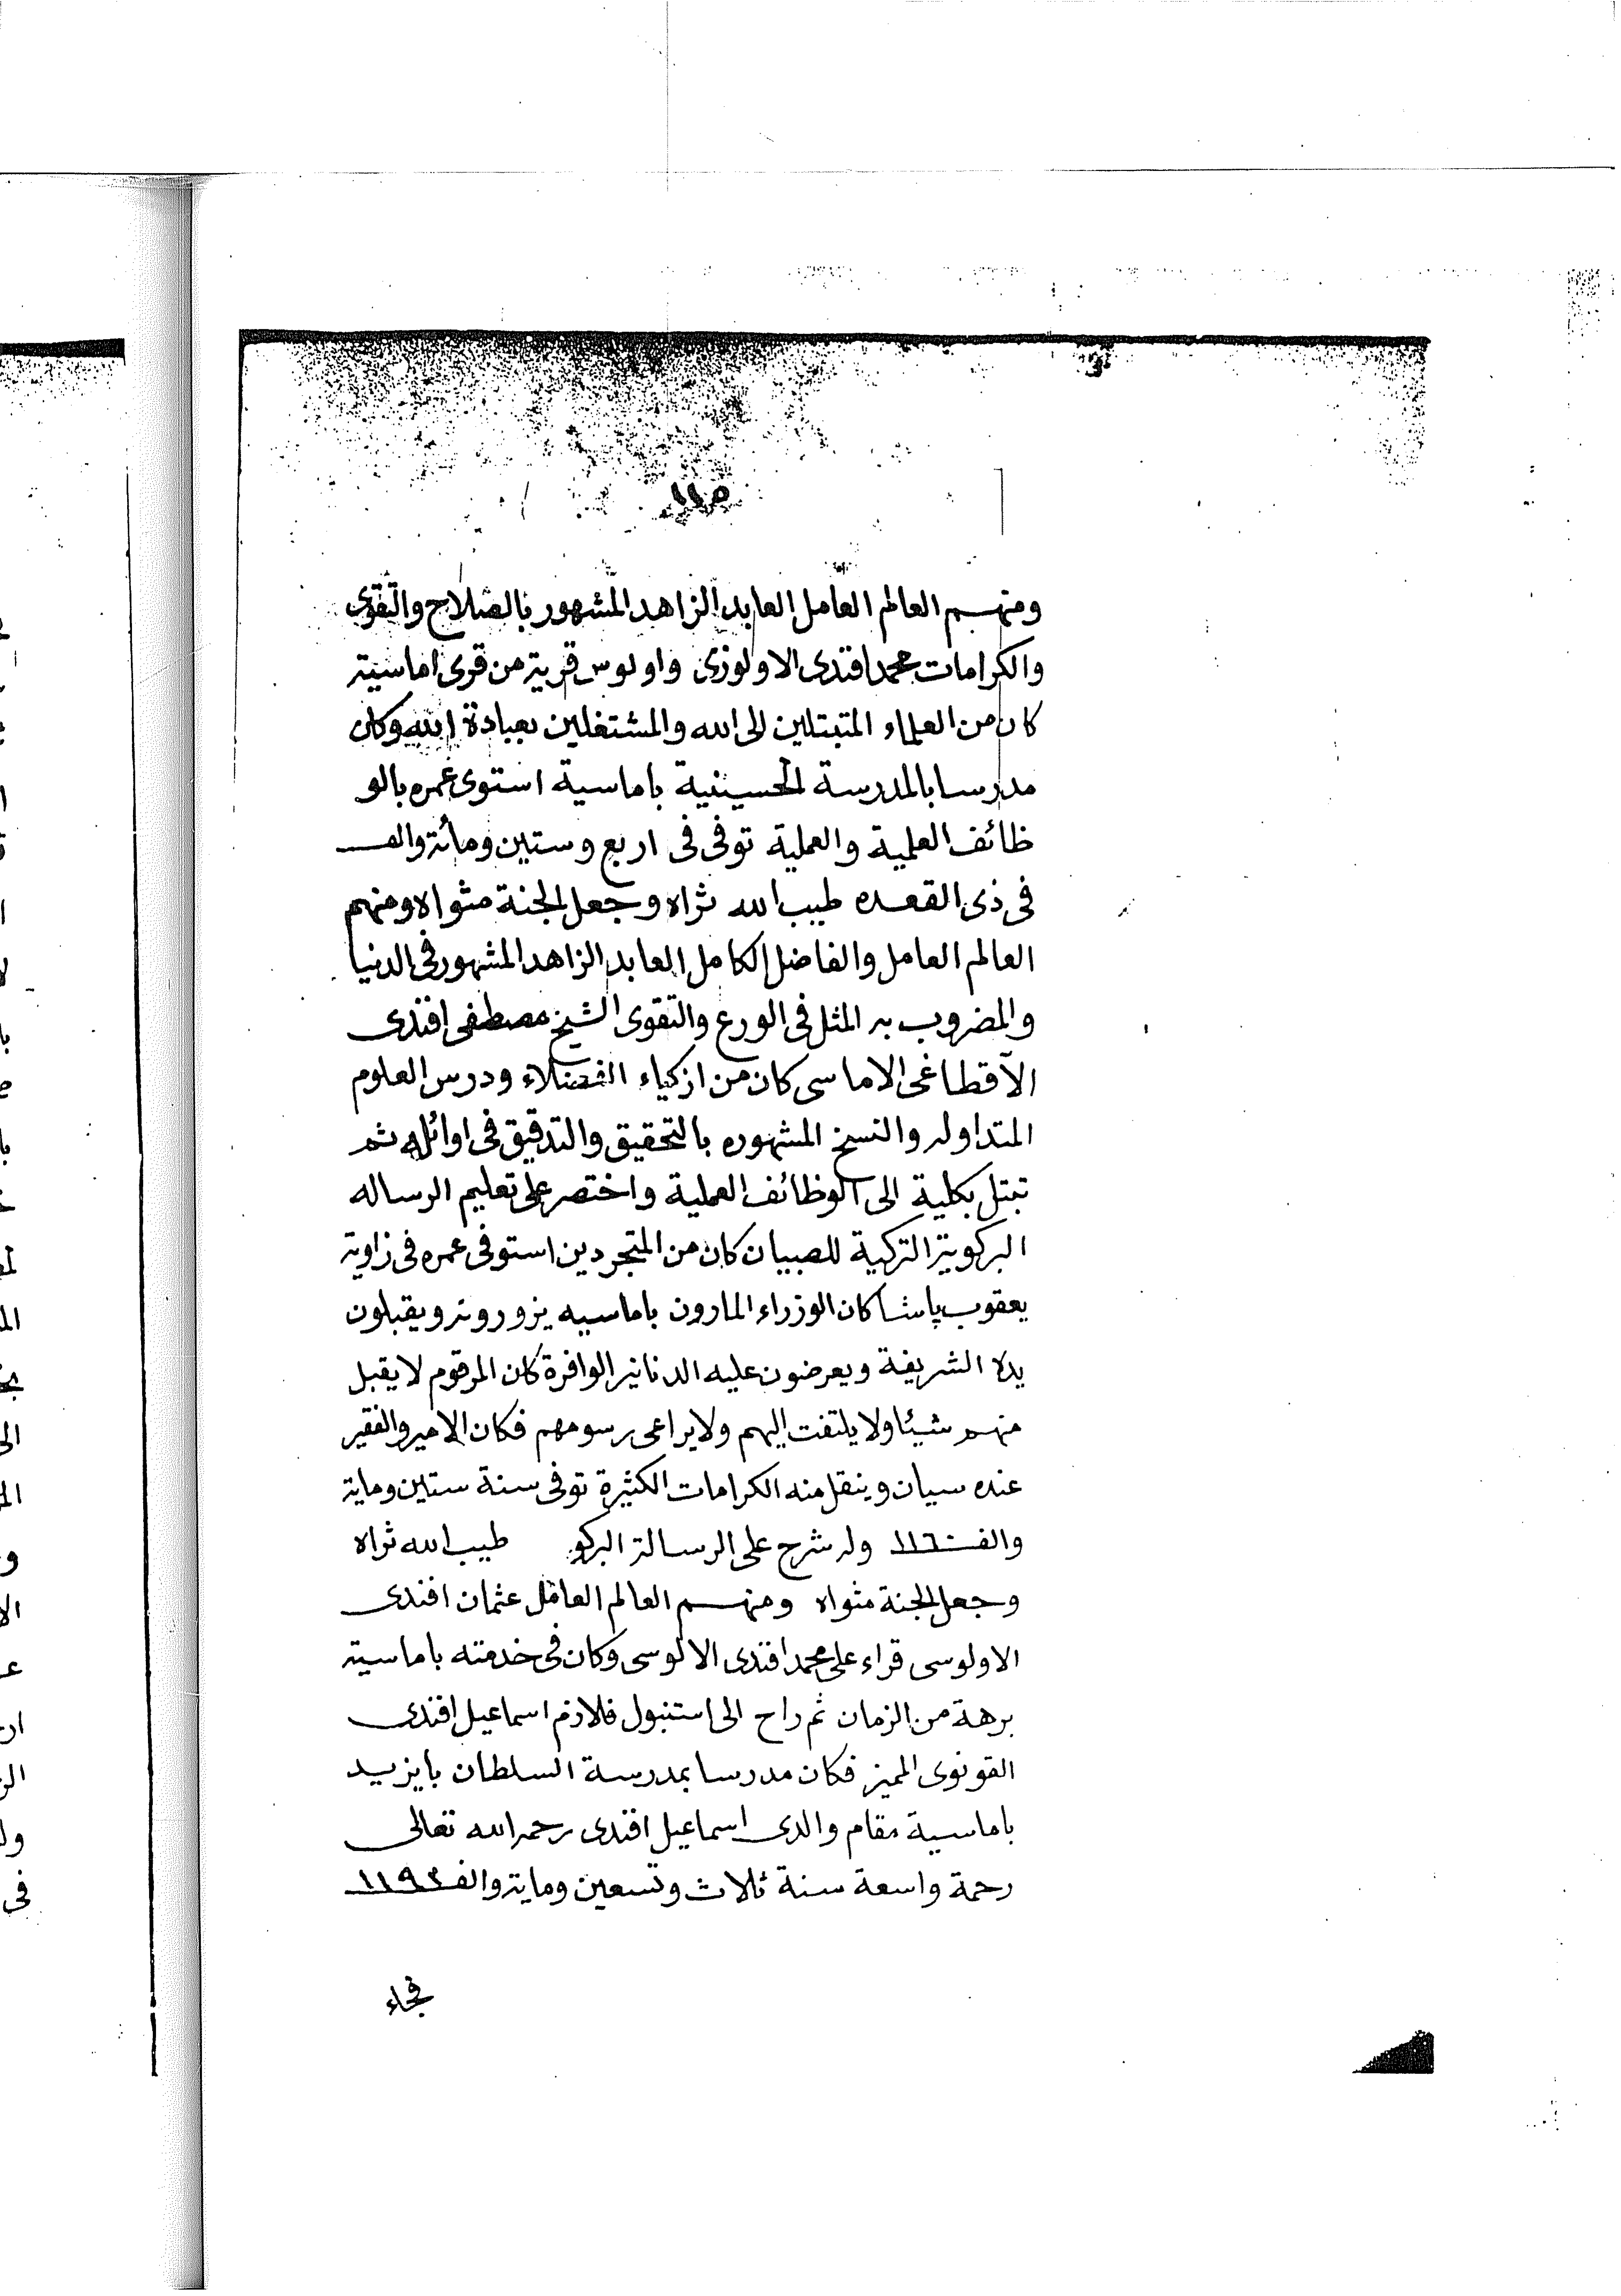 ١١٥
ومنهم العالم العامل العابد الزاهد المشهور بالصلاح والتقوى
والكرامات محمد افندى الاولوزى واولوس قرية من قرى اماسية
كان من العلماء المتبتلين الى الله والمشتغلين بعبادة الله وكان
مدرسا بالمدرسة الحسينية باماسية استوى عمره بالو
ظائف العلمية والعملية توفى فى اربع وستين ومأته والف
فى ذى القعده طيب الله ثراه وجعل الجنة مثواه ومنهم
العالم العامل والفاضل الكامل العابد الزاهد المشهور فى الدنيا
والمضروب به المثل فى الورع والتقوى الشيخ مصطفى افندى
الآقطاغى الاماسى كان من ازكياء الفضلاء ودرس العلوم
المتداوله والنسخ المشهوره بالتحقيق والتدقيق فى اوائله ثم
تبتل بكلية الى الوظائف العملية واختصر على تعليم الرساله
البركوية التركية للصبيان كان من المتجردين استوفى عمره فى زاوية
يعقوب پاشا كان الوزراء المارون باماسيه يزورونه ويقبلون
يده الشريفة ويعرضون عليه الدنانير الوافرة كان المرقوم لا يقبل
منهم شيئا ولا يلتفت اليهم ولا يراعى رسومهم فكان الامير والفقير
عنده سيان وينقل منه الكرامات الكثيرة توفى سنة ستين وماية
والف ١١٦٠ وله شرح على الرسالة البركو طيب الله ثراه
وجعل الجنة مثواه ومنهم العالم العامل عثمان افندى
الاولوسى قراء على محمد افندى الالوسى وكان فى خدمته باماسية
برهة من الزمان ثم راح الى استنبول فلازم اسماعيل افندى
القونوى المميز فكان مدرسا بمدرسة السلطان بايزيد
باماسية مقام والدى اسماعيل افندى رحمه الله تعالى
رحمة واسعة سنة ثلاث وتسعين وماية والف ١١٩٣
فجاء